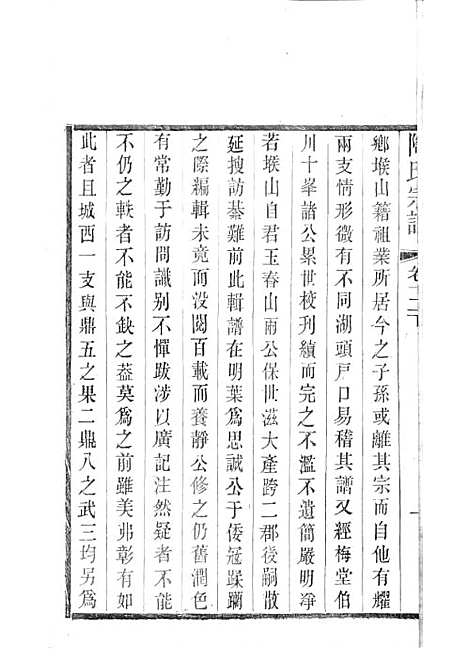 氏宗譜 卷十二下 一
鄉堠山籍祖業所居今之子孫或離其宗而自他有耀
兩支情形微有不同湖頭戸口易稽其譜又經梅堂伯
川十峯諸公累世校刊續而完之不濫不遺簡嚴明凈
若堠山自君玉春山兩公保世滋大產跨二郡後嗣散
延搜訪綦難前此輯譜在明葉為思誠公于倭冠蹂躪
之際編輯未竟而没閱百載而養靜公修之仍舊潤色
有常勤于訪問識别不憚跋涉以廣記注然疑者不能
不仍之軼者不能不缺之葢莫為之前雖美弗彰有如
此者且城西一支與鼎五之果二鼎八之武三均另為